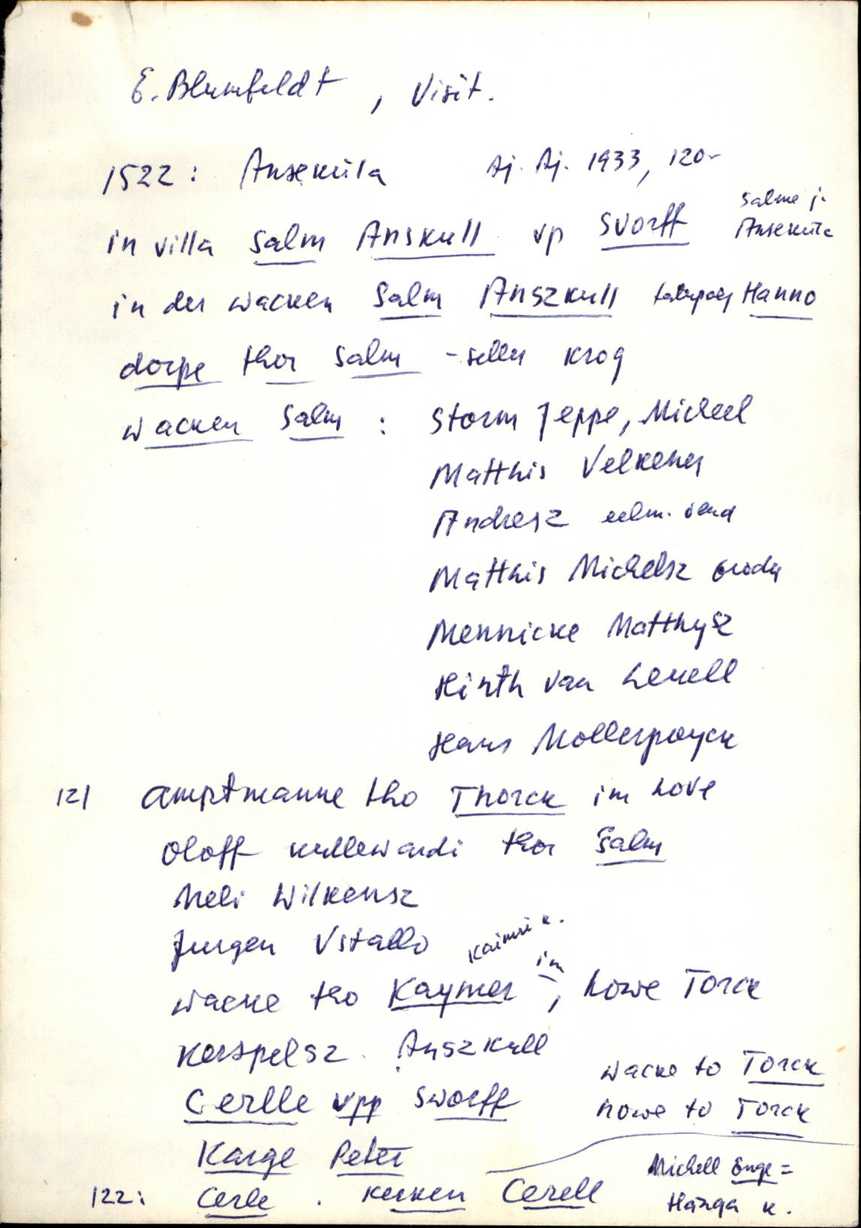 E. Blumfeldt, Visit.
1522: Anseküla Aj. Aj. 1933, 120-
Salme j.
in villa Salm Anskull vp Svorff Anseküla
in der wacken Salm Anszkull Hanno
dorpe thor Salm - seller Krog
wacken Salm: Storm Jeppe, Micheel
Matthis Velkener
Andresz
Matthis Michelsz
Mennicke Matthysz
Hinth van
Hans Mollerpoyck
121 amptmanne tho Thorck im hove
Oloff kullewardi thor Salm
Meli Wilkensz
Jurgen Vstallo Kaimri k.
im
wacke tho Kaymer, howe Torck
Kerspelsz. Anszkull
wacke to Torck
Cerlle vpp Sworff
howe to Torck
Karge Peter
Michell Enge=
122: Cerle. kercken Cerell
Hanga k.